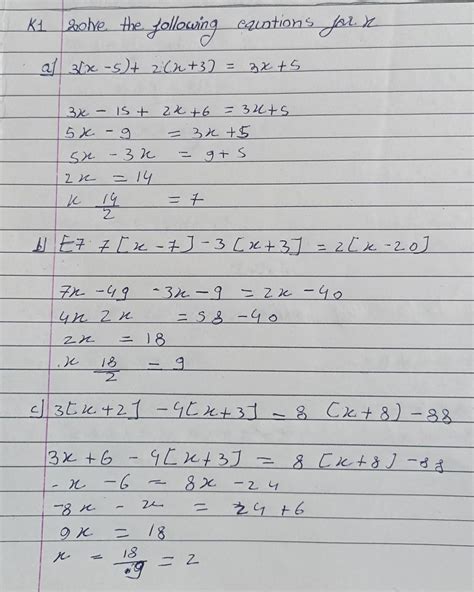 K1 Solve the following equntions for x
a) 3(x-5)+ 2(x+3) = 3x+5
3x - 15 + 2x+6 = 3x+5
5x - 9 = 3x+5
5x - 3x = 9+5
2x = 14
x 14/2 = 7
b) [-7 7[x-7]-3[x+3] = 2[x-20]
7x-49 -3x-9 = 2x-40
4x 2x = 58-40
2x = 18
x 18/2 = 9
c) 3[x+2] -4[x+3] = 8 (x+8) -88
3x+6 -4[x+3] = 8 [x+8]-88
-x -6 = 8x -24
-8x - x = 24+6
9x = 18
x = 18/9 = 2